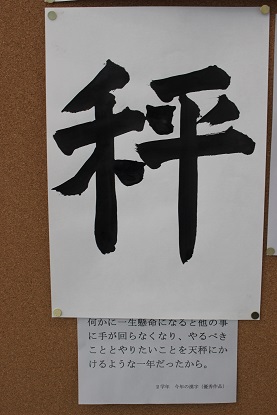 秤
何かに一生懸命になると他の事
に手が回らなくなり、やるべき
こととやりたいことを天秤にか
けるような一年だったから。
文学部 今年の漢字（優秀作品）